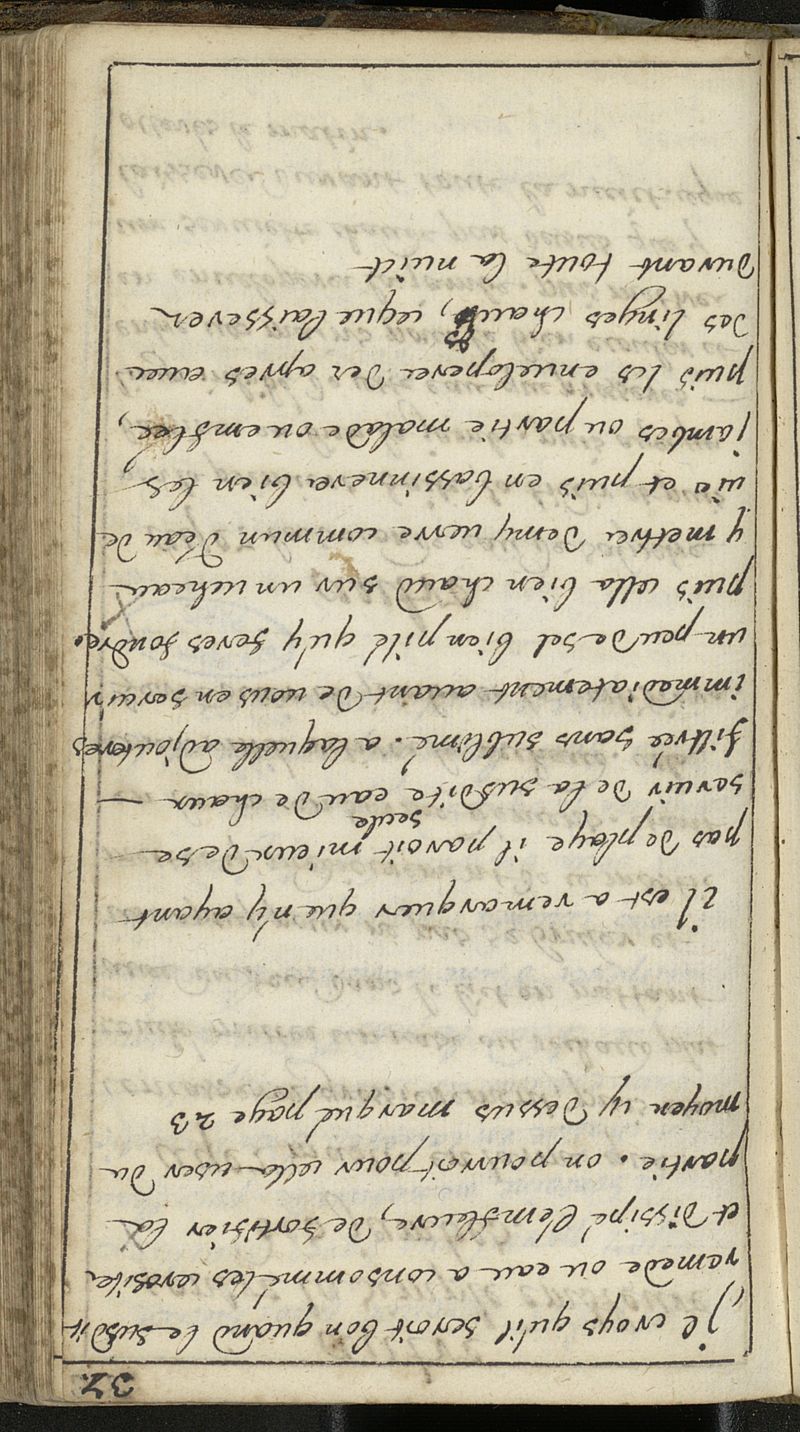 37
Je croys qu'il seroit bon quand le susdit
remede ou eau a consommé les serosites
et dissipé l'emfleure, de fortifier la
partie. on pourroit pour cella user du
moyen cy dessus marqué page 23
il est a remarquer que n'y ayant
pas de playe il paroit mieux de se
seule
servir de la susdite eau de chaux
filtrée sans sublimé. a laquelle adjouteres
immediatement avant de vous en servir
un peu de sel bien pilé qu'y feres fondre.
puis cella bien chaud sur un rcheau
y mettre demy verre commun d'eau de
vie et puis en bassinner bien les
jambes ou partie malade ou emflée,
puis les enveloper der apres avec
des linges chauds, ceque laisseres
durant toute la nuict